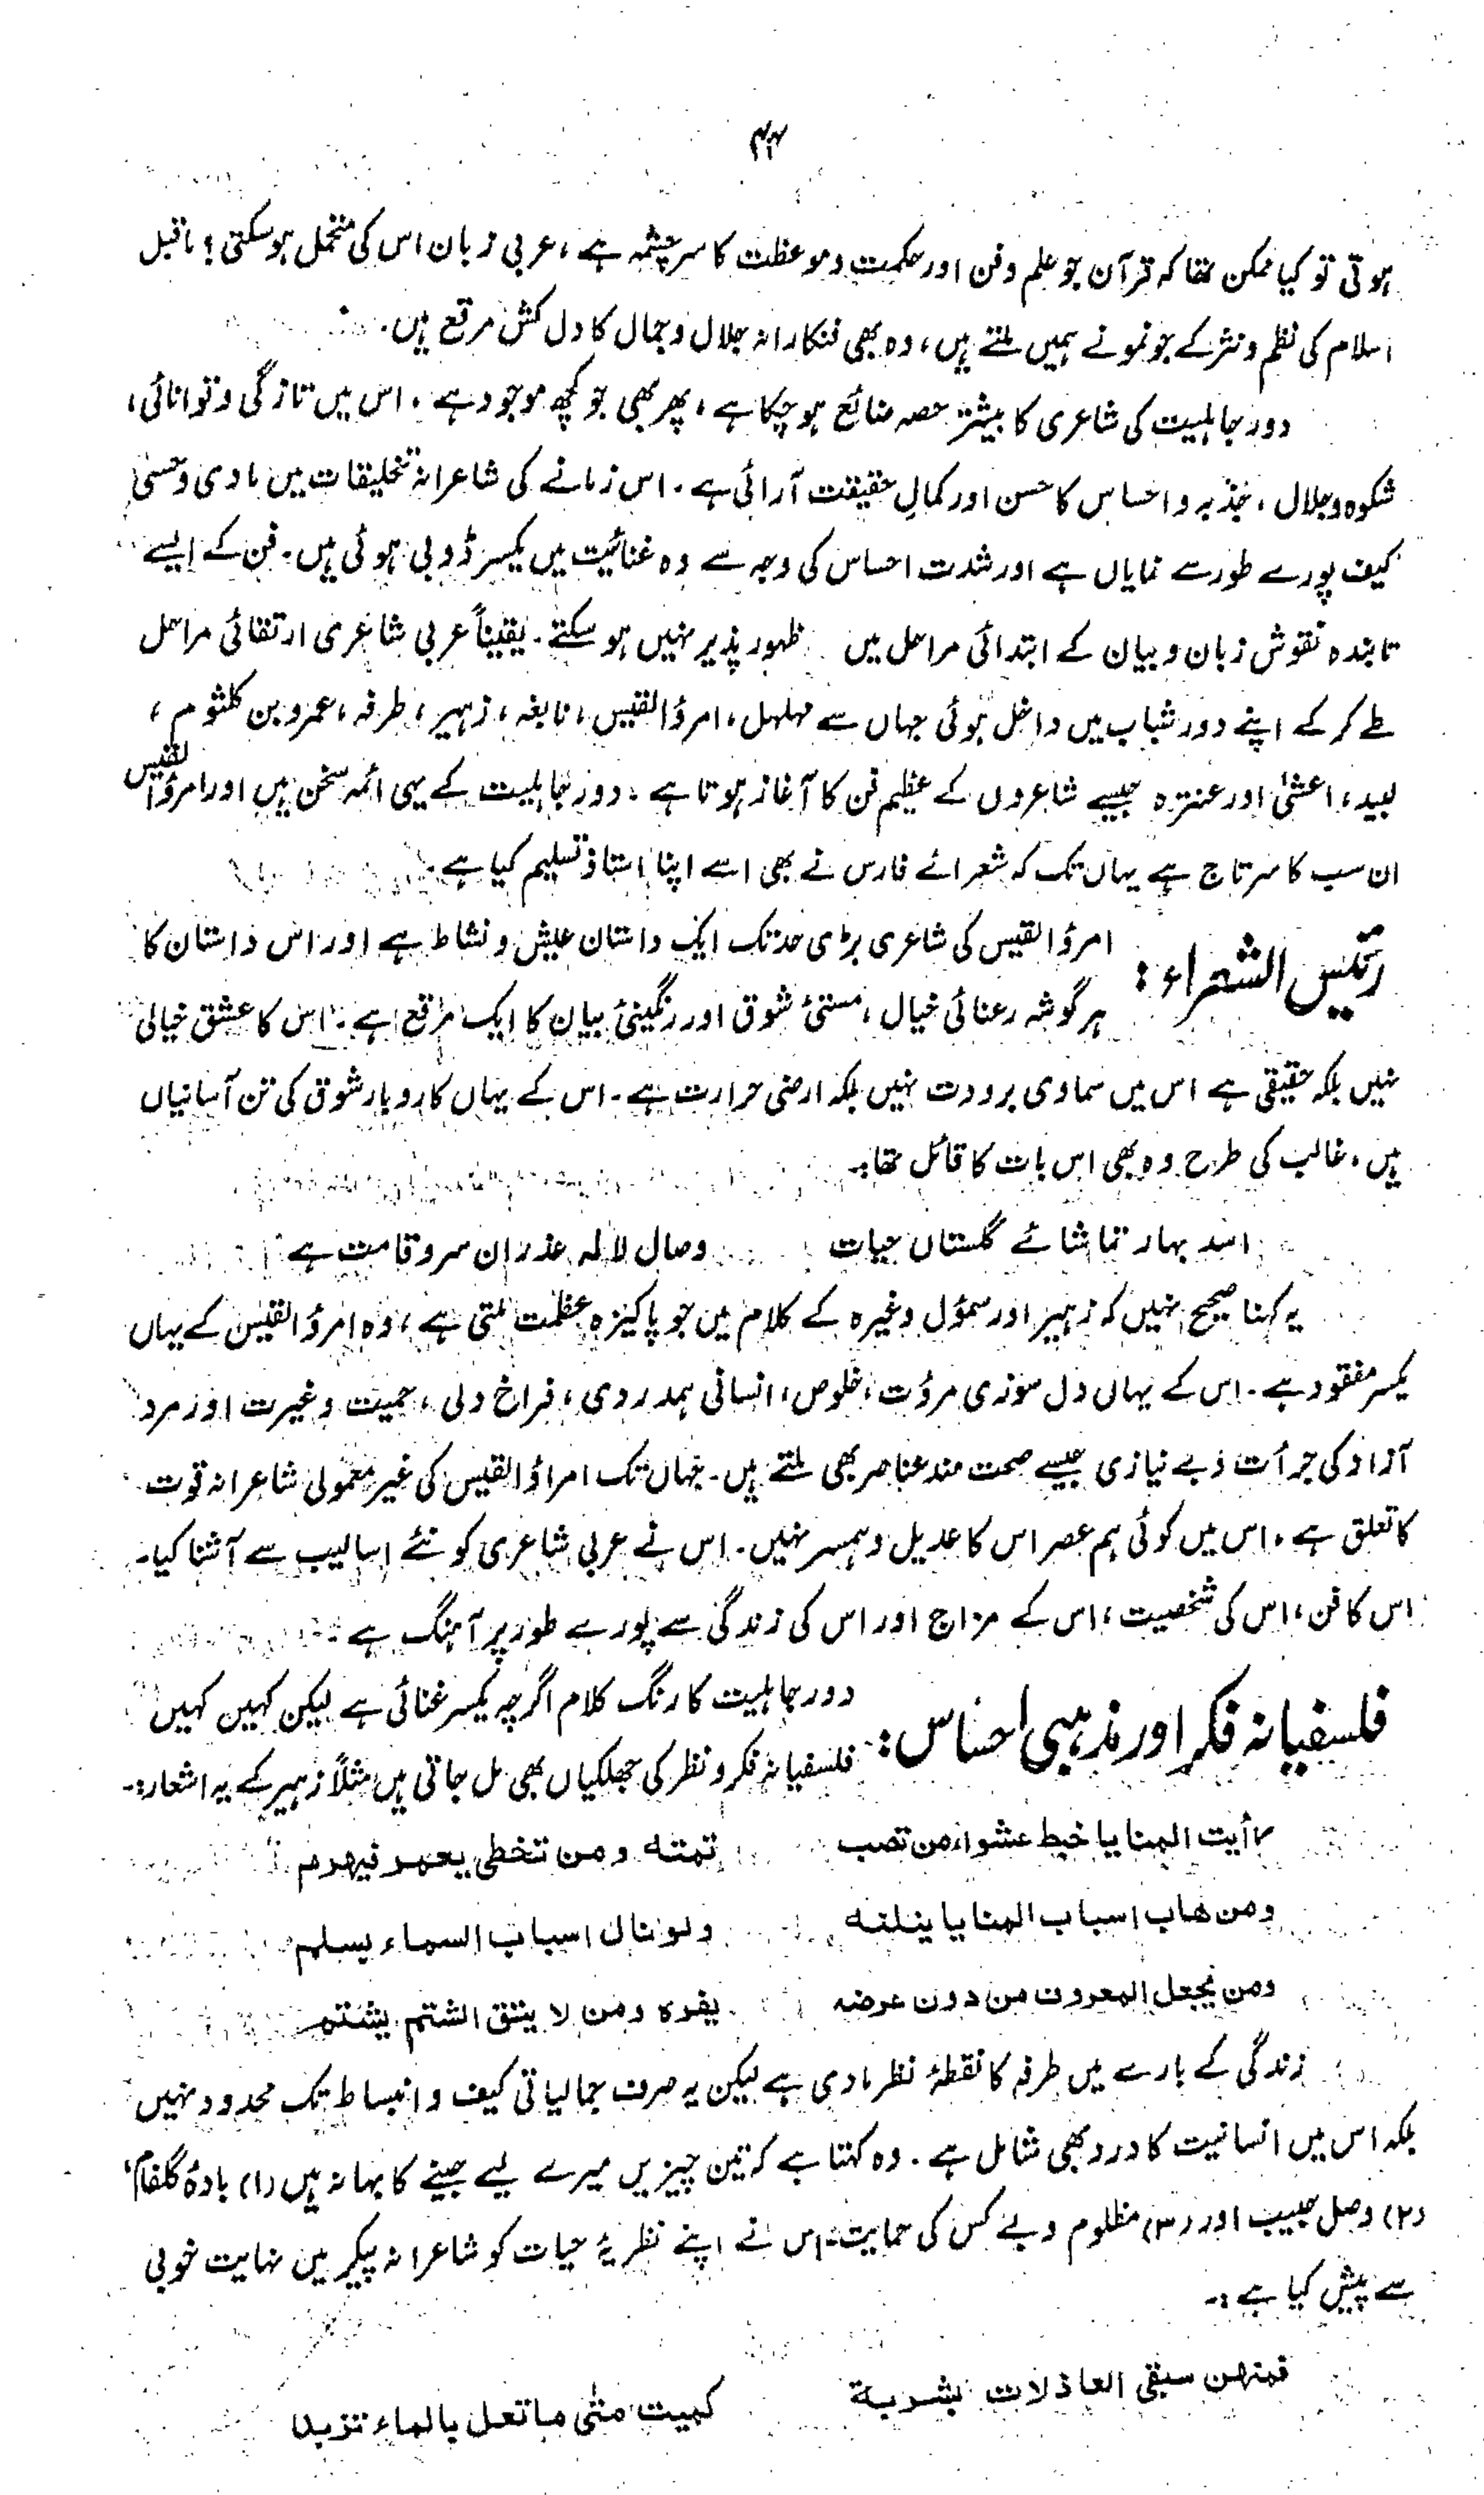 ۴۴
ہوتی تو کیا ممکن تھا کہ قرآن جو علم و فن اور حکمت و موعظت کا سرچشمہ ہے، عربی زبان اس کی متحمل ہوسکتی؟ ماقبل
اسلام کی نظم و نثر کے جو نمونے ہمیں ملتے ہیں، وہ بھی فنکارانہ جلال و جمال کا دل کش مرقع ہیں۔
دور جاہلیت کی شاعری کا بیشتر حصہ ضائع ہوچکا ہے، پھر بھی جو کچھ موجود ہے، اس میں تازگی و توانائی،
شکوہ و جلال، جذبہ و احساس کا حسن اور کمالِ حقیقت آرائی ہے۔ اس زمانے کی شاعرانہ تخلیقات میں مادی و حسی
کیف پورے طور سے نمایاں ہے اور شدت احساس کی وجہ سے وہ غنائیت میں یکسر ڈوبی ہوئی ہیں۔ فن کے ایسے
تابندہ نقوش زبان و بیان کے ابتدائی مراحل میں ظہور پذیر نہیں ہو سکتے۔ یقیناً عربی شاعری ارتقائی مراحل
طے کر کے اپنے دور شباب میں داخل ہوئی جہاں سے مہلہل، امرؤ القیس، نابغہ، زہیر، طرفہ، عمرو بن کلثوم،
لبید، اعشیٰ اور عنترہ جیسے شاعروں کے عظیم فن کا آغاز ہوتا ہے۔ دور جاہلیت کے یہی ائمہ سخن ہیں اور امرؤ القیس
ان سب کا سرتاج ہے یہاں تک کہ شعرائے فارس نے بھی اسے اپنا استاذ تسلیم کیا ہے۔
رئیس الشعراء: امرؤ القیس کی شاعری بڑی حد تک ایک داستان عیش و نشاط ہے اور اس داستان کا
ہر گوشہ رعنائی خیال، مستیٔ شوق اور رنگینیٔ بیان کا ایک مرقع ہے۔ اس کا عشق خیالی
نہیں بلکہ حقیقی ہے اس میں سماوی برودت نہیں بلکہ ارضی حرارت ہے۔ اس کے یہاں کاروبار شوق کی تن آسانیاں
ہیں، غالب کی طرح وہ بھی اس بات کا قائل تھا۔
اسد بہار تماشائے گلستاں حیات وصال لالہ عذران سرو قامت ہے
یہ کہنا صحیح نہیں کہ زہیر اور سموٴل وغیرہ کے کلام میں جو پاکیزہ عظمت ملتی ہے، وہ امرؤ القیس کے یہاں
یکسر مفقود ہے۔ اس کے یہاں دل سوزی مروّت، خلوص، انسانی ہمدردی، فراخ دلی، حمیت و غیرت اور مرد
آزاد کی جرأت و بے نیازی جیسے صحت مند عناصر بھی ملتے ہیں۔ جہاں تک امراؤ القیس کی غیر معمولی شاعرانہ قوت
کا تعلق ہے، اس میں کوئی ہم عصر اس کا عدیل و ہمسر نہیں۔ اس نے عربی شاعری کو نئے اسالیب سے آشنا کیا۔
اس کا فن، اس کی شخصیت، اس کے مزاج اور اس کی زندگی سے پورے طور پر آہنگ ہے۔
فلسفیانہ فکر اور مذہبی احساس: دور جاہلیت کا رنگ کلام اگرچہ یکسر غنائی ہے لیکن کہیں کہیں
فلسفیانہ فکر و نظر کی جھلکیاں بھی مل جاتی ہیں مثلاً زہیر کے یہ اشعار:۔
رأیت المنایا خبط عشواء من تصب تمته ومن تخطی یعمر فیهرم
ومن هاب اسباب المنایا ینلنه ولو نال اسباب السماء بسلم
ومن یجعل المعروف من دون عرضه یفره ومن لا یتق الشتم یشتم
زندگی کے بارے میں طرفہ کا نقطۂ نظر مادی ہے لیکن یہ صرف جمالیاتی کیف و انبساط تک محدود نہیں
بلکہ اس میں انسانیت کا درد بھی شامل ہے۔ وہ کہتا ہے کہ تین چیزیں میرے لیے جینے کا بہانہ ہیں (۱) بادۂ گلفام،
(۲) وصل حبیب اور (۳) مظلوم و بے کس کی حمایت۔ اس نے اپنے نظریۂ حیات کو شاعرانہ پیکر میں نہایت خوبی
سے پیش کیا ہے:۔
فمنهن سبقی العاذلات بشربة کمیت متی ما تعل بالماء تزبد